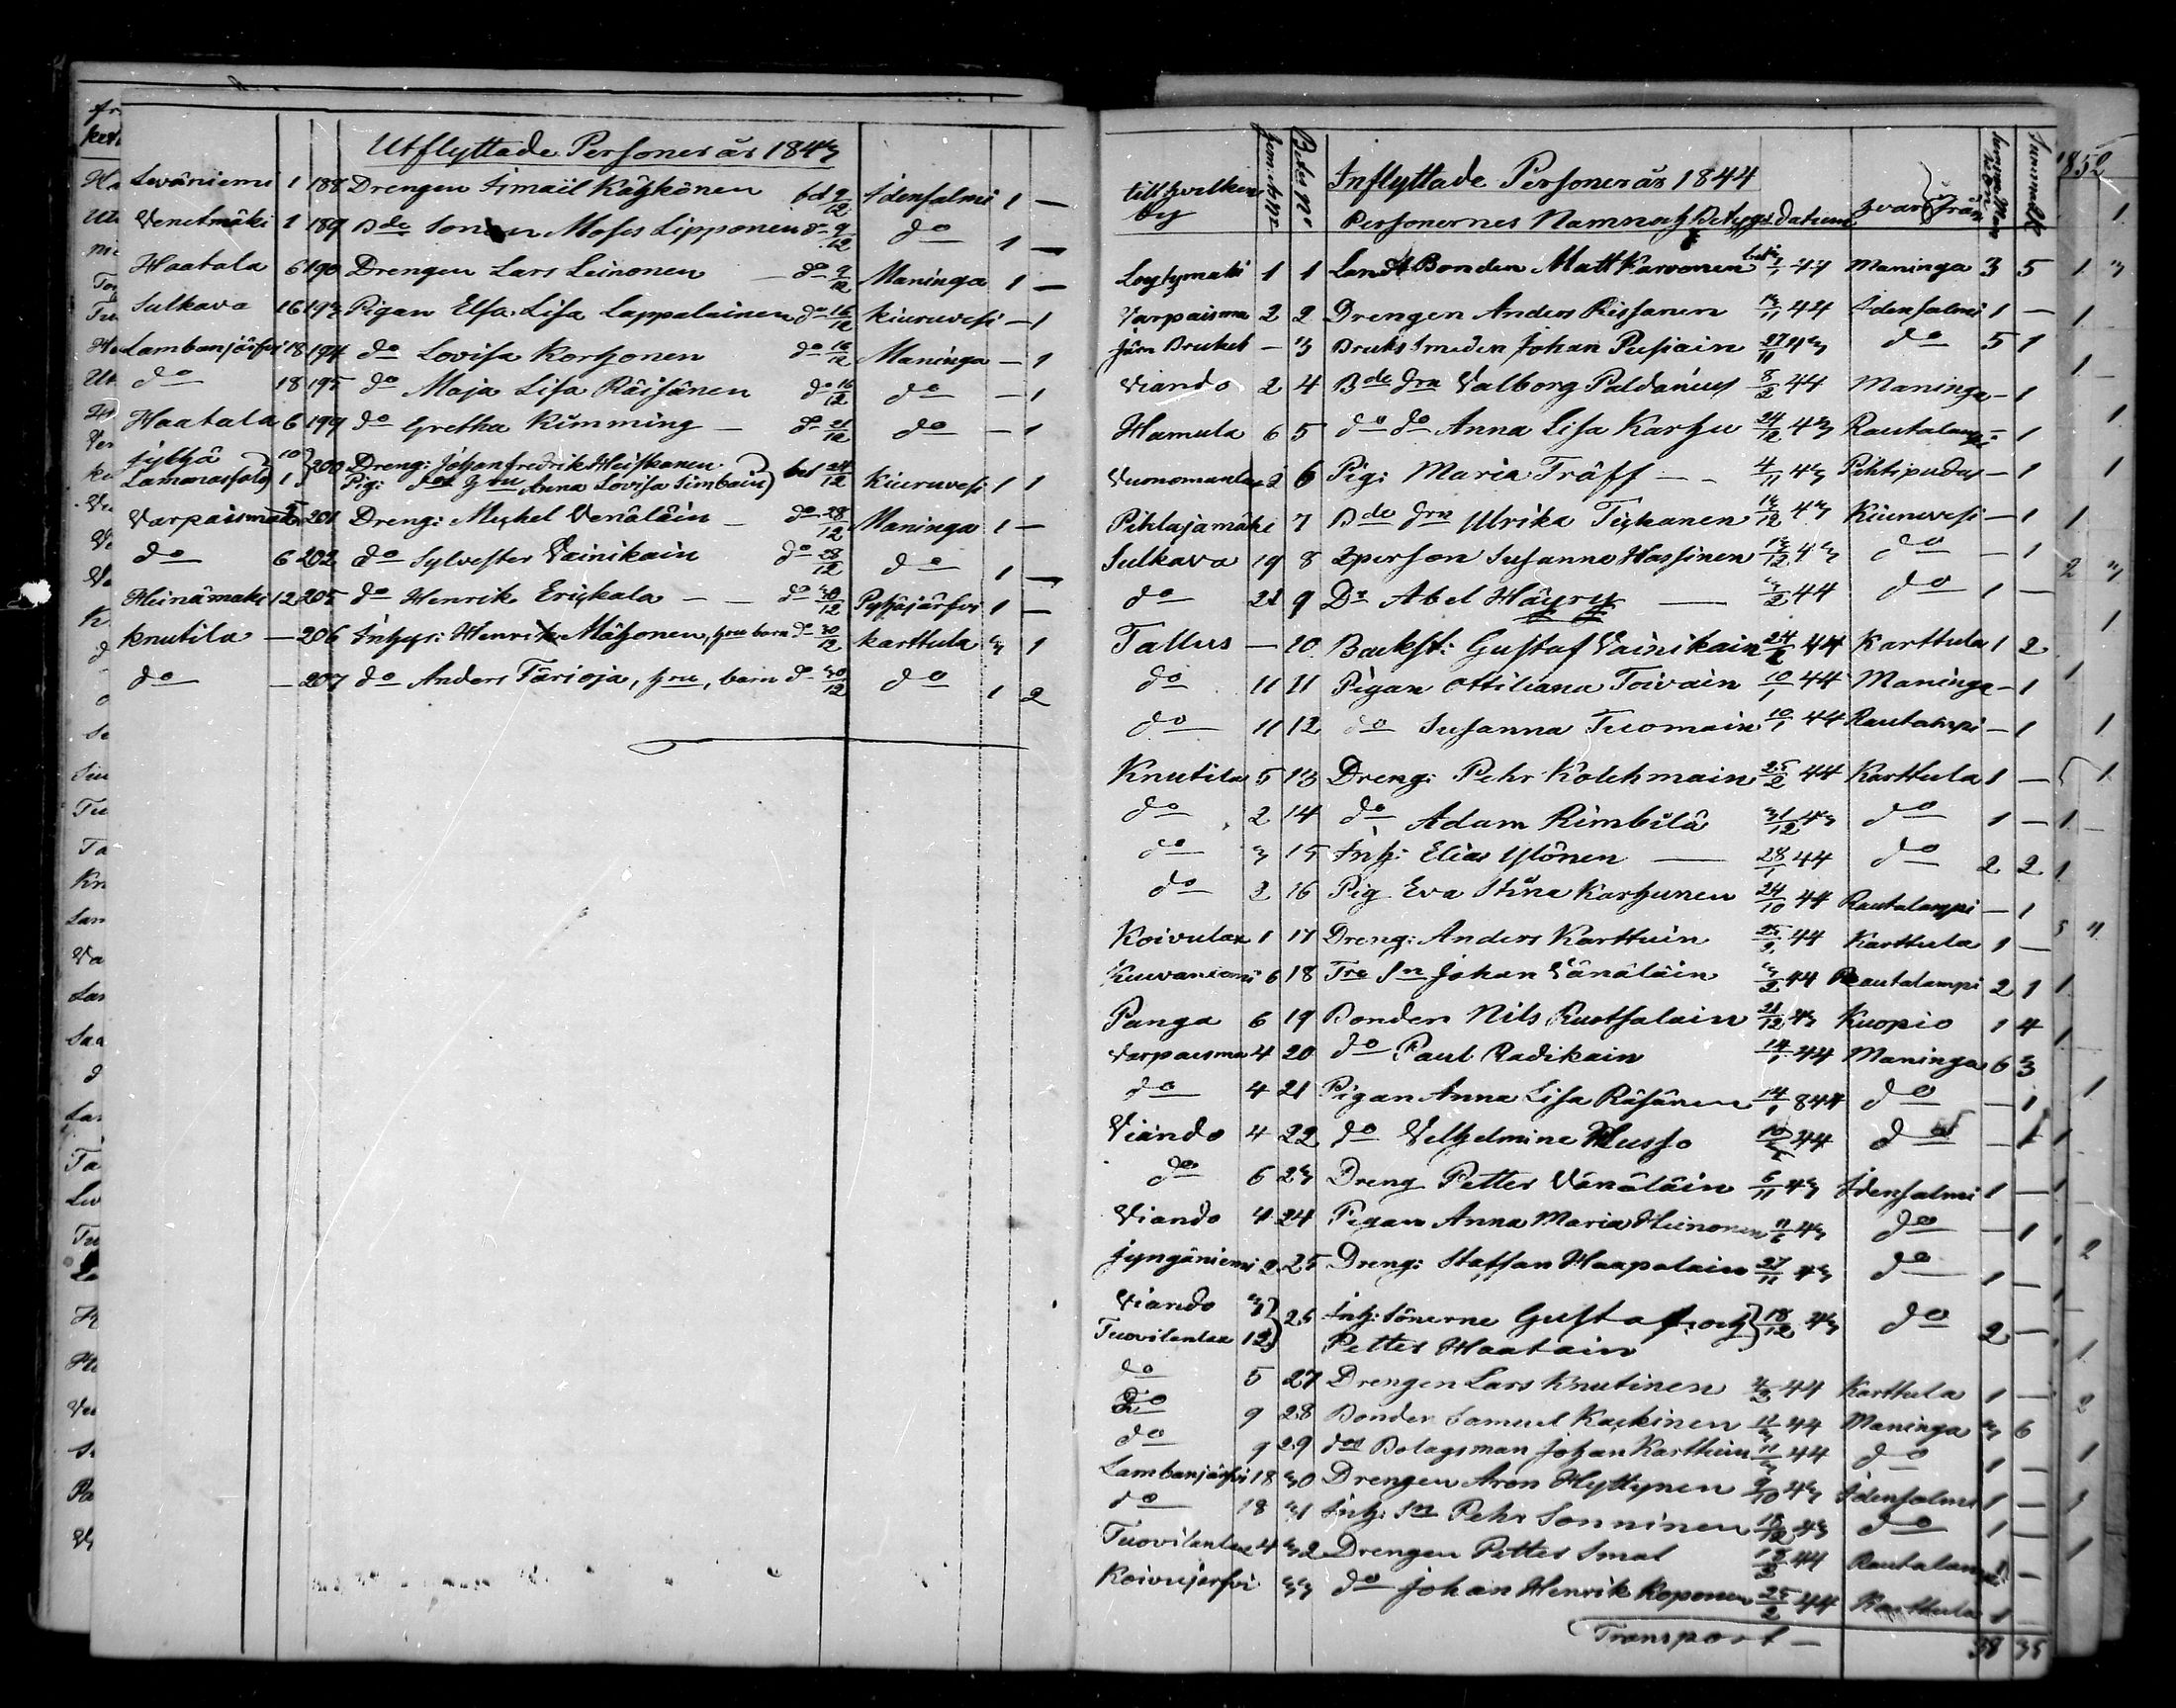 Utflyttade Personer år 1843
Leväniemi 1 188 Drengen Ismaïl Käyhkönen bd 9/12 Idensalmi 1 —
Venetmäki 1 189 Bde Sonen Moses Lipponen do 9/12 do 1 —
Haatala 6 190 Drengen Lars Leinonen — do 9/12 Maninga 1 —
Sulkava 16 193 Pigan Elsa Lisa Lappalainen do 16/12 Kiuruvesi — 1
Lambanjärfvi 18 194 do Lovisa Korhonen do 16/12 Maninga — 1
do 18 195 do Maja Lisa Räisänen do 16/12 do — 1
Haatala 6 199 do Gretha Kimming — do 21/12 do — 1
Jylhä 10 200 Dreng: Johan Fredrik Heiskanen bet 24/12 Kiuruvesi 1 1
1 Pig: Anna Lovisa Simbain
Varpaisma 201 Dreng: Michel Venäläin — do 28/12 Maninga 1 —
do 6 202 do Sylvester Vainikain do 28/12 do 1 —
Heinämäki 12 205 do Henrik Erickala — — do 30/12 Pyhäjärfvi 1 —
Knutila — 206 Inhys: Henrik Mähonen, hru barn do 30/12 Karttula 3 1
do — 207 do Anders Tarioja, hru, barn do 30/12 do 1 2
1852
Inflyttade Personer år 1844
till hvilken by Personernes Namn och Betygs datum hvarifrån
Löytymäki 1 1 Landt Bonden Matt Karvonen 44 Maninga 3 5
Varpaisma 2 2 Drengen Anders Rissanen 13/11 44 Idensalmi 1 —
Jern Bruket — 3 Bruks Smeden Johan Pusiain 27/11 43 do 5 1
Viando 2 4 Bde Drn Valborg Paldanius 8/2 44 Maninga — 1
Hamula 6 5 do do Anna Lisa Karhu 24/12 43 Rautalampi — 1
Vuonomanlax 2 6 Pig: Maria Träff — — 4/11 43 Pihtipudas — 1
Pihlajamäki 7 Bde drn Ulrika Tickanen 13/12 43 Kiuruvesi — 1
Sulkava 19 8 Qperson Susanna Hassinen 13/12 43 do — 1
do 21 9 Dr Abel Häyry — 3/2 44 do 1 —
Tallus — 10 Backst: Gustaf Vainikain 44 Karttula 1 2
do 11 11 Pigan Ottiliana Toivain 10/1 44 Maninga — 1
do 11 12 do Susanna Tuomain 10/1 44 Rautalampi — 1
Knutila 5 13 Dreng: Pehr Kolehmain 25/2 44 Karttula 1 —
do 2 14 do Adam Rimbilä 31/12 43 do 1 —
do 3 15 Inh: Elias Ylönen — 28/1 44 do 2 2
do 2 16 Pig Eva Stina Karhunen 24/10 44 Rautalampi — 1
Koivulax 1 17 Dreng: Anders Karttuin 25/2 44 Karttula 1 —
Kuvaniemi 6 18 Tre Sn Johan Vänäläin 3/2 44 Rautalampi 2 1
Panga 6 19 Bonden Nils Ruotsalain 21/12 43 Kuopio 1 4
Varpaisma 4 20 do Paul Radikain 14/1 44 Maninga 6 3
do 4 21 Pigan Anna Lisa Räsänen 14/1 844 do — 1
Viando 4 22 do Velhelmina Husso 44 do — 1
do 6 23 Dreng Petter Vänäläin 6/11 43 Idensalmi 1 —
Viando 4 24 Pigan Anna Maria Heinonen 43 do — 1
Jyngäniemi 2 25 Dreng: Staffan Haapalain 27/11 43 do 1 —
Viando 3 26 Inh: Sönerne Gustaf och 18/12 43 do 2 —
Tuovilanlax 12 Petter Haatain
do 5 27 Drengen Lars Knutinen 44 Karttula 1 —
do 9 28 Bonden Samuel Kackinen 44 Maninga 3 6
do 9 29 dos Bolagsman Johan Karttuin 44 do 1 —
Lambanjärfvi 18 30 Drengen Aron Hyttynen 9/10 43 Idensalmi 1 —
do 18 31 Inh: Sn Pehr Sonninen 18/12 43 do 1 —
Tuovilanlax 4 32 Drengen Petter Smal 44 Rautalampi 1 —
Koivujerfvi 33 do Johan Henrik Koponen 25/2 44 Karttula 1 —
Transport — 38 35